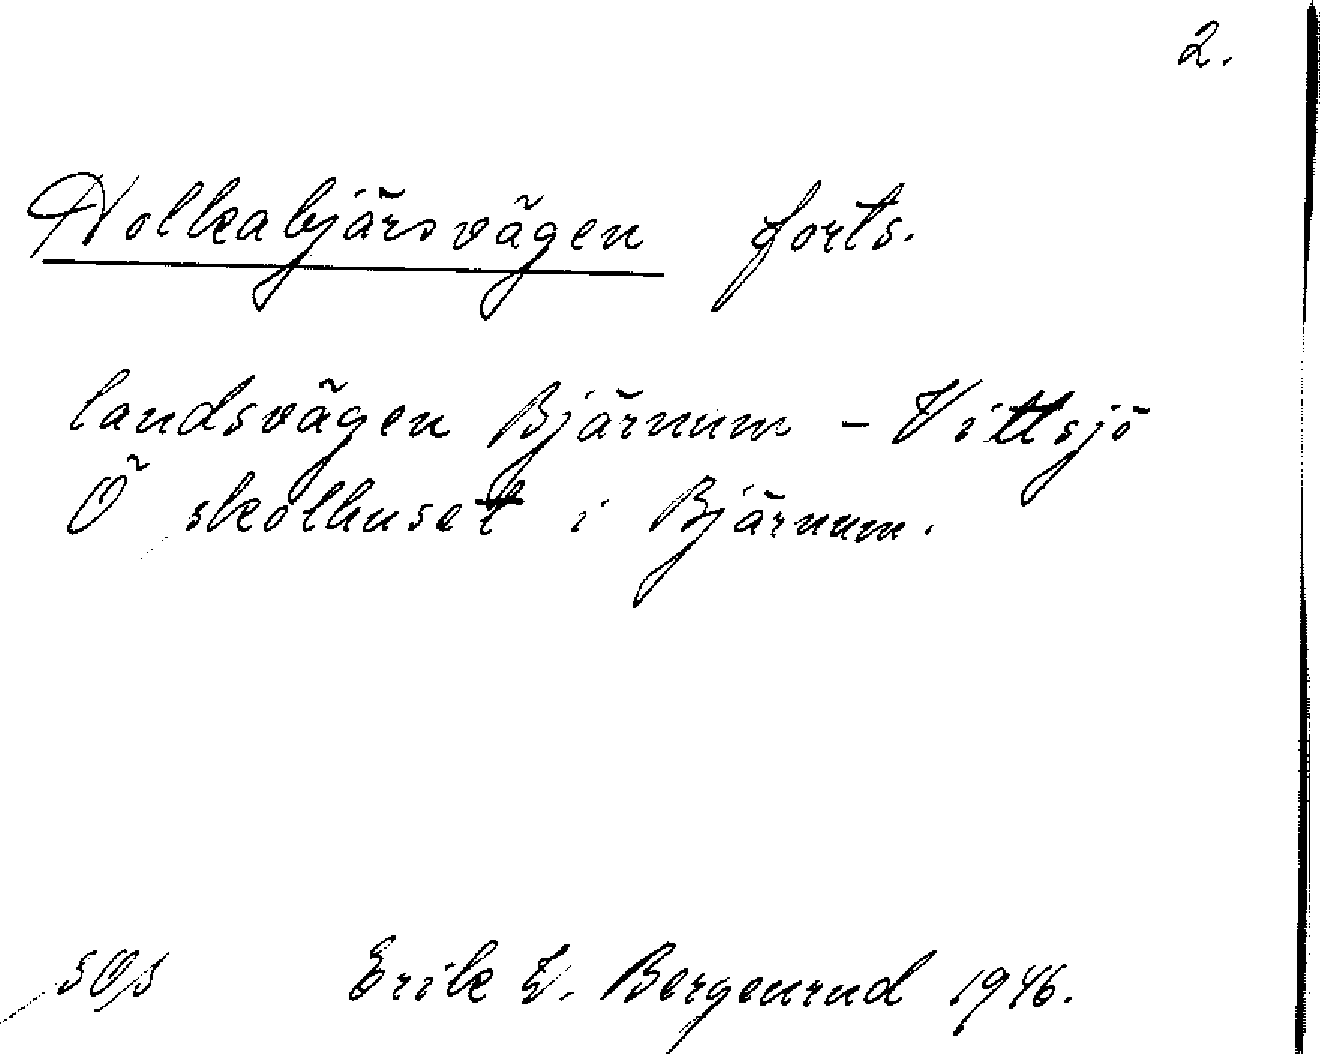 2.
Holkabjärsvägen forts.
landsvägen Bjärnum - Vittsjö
Ö skolhuset i Bjärnum.
Erik W. Bergenrud 1946.